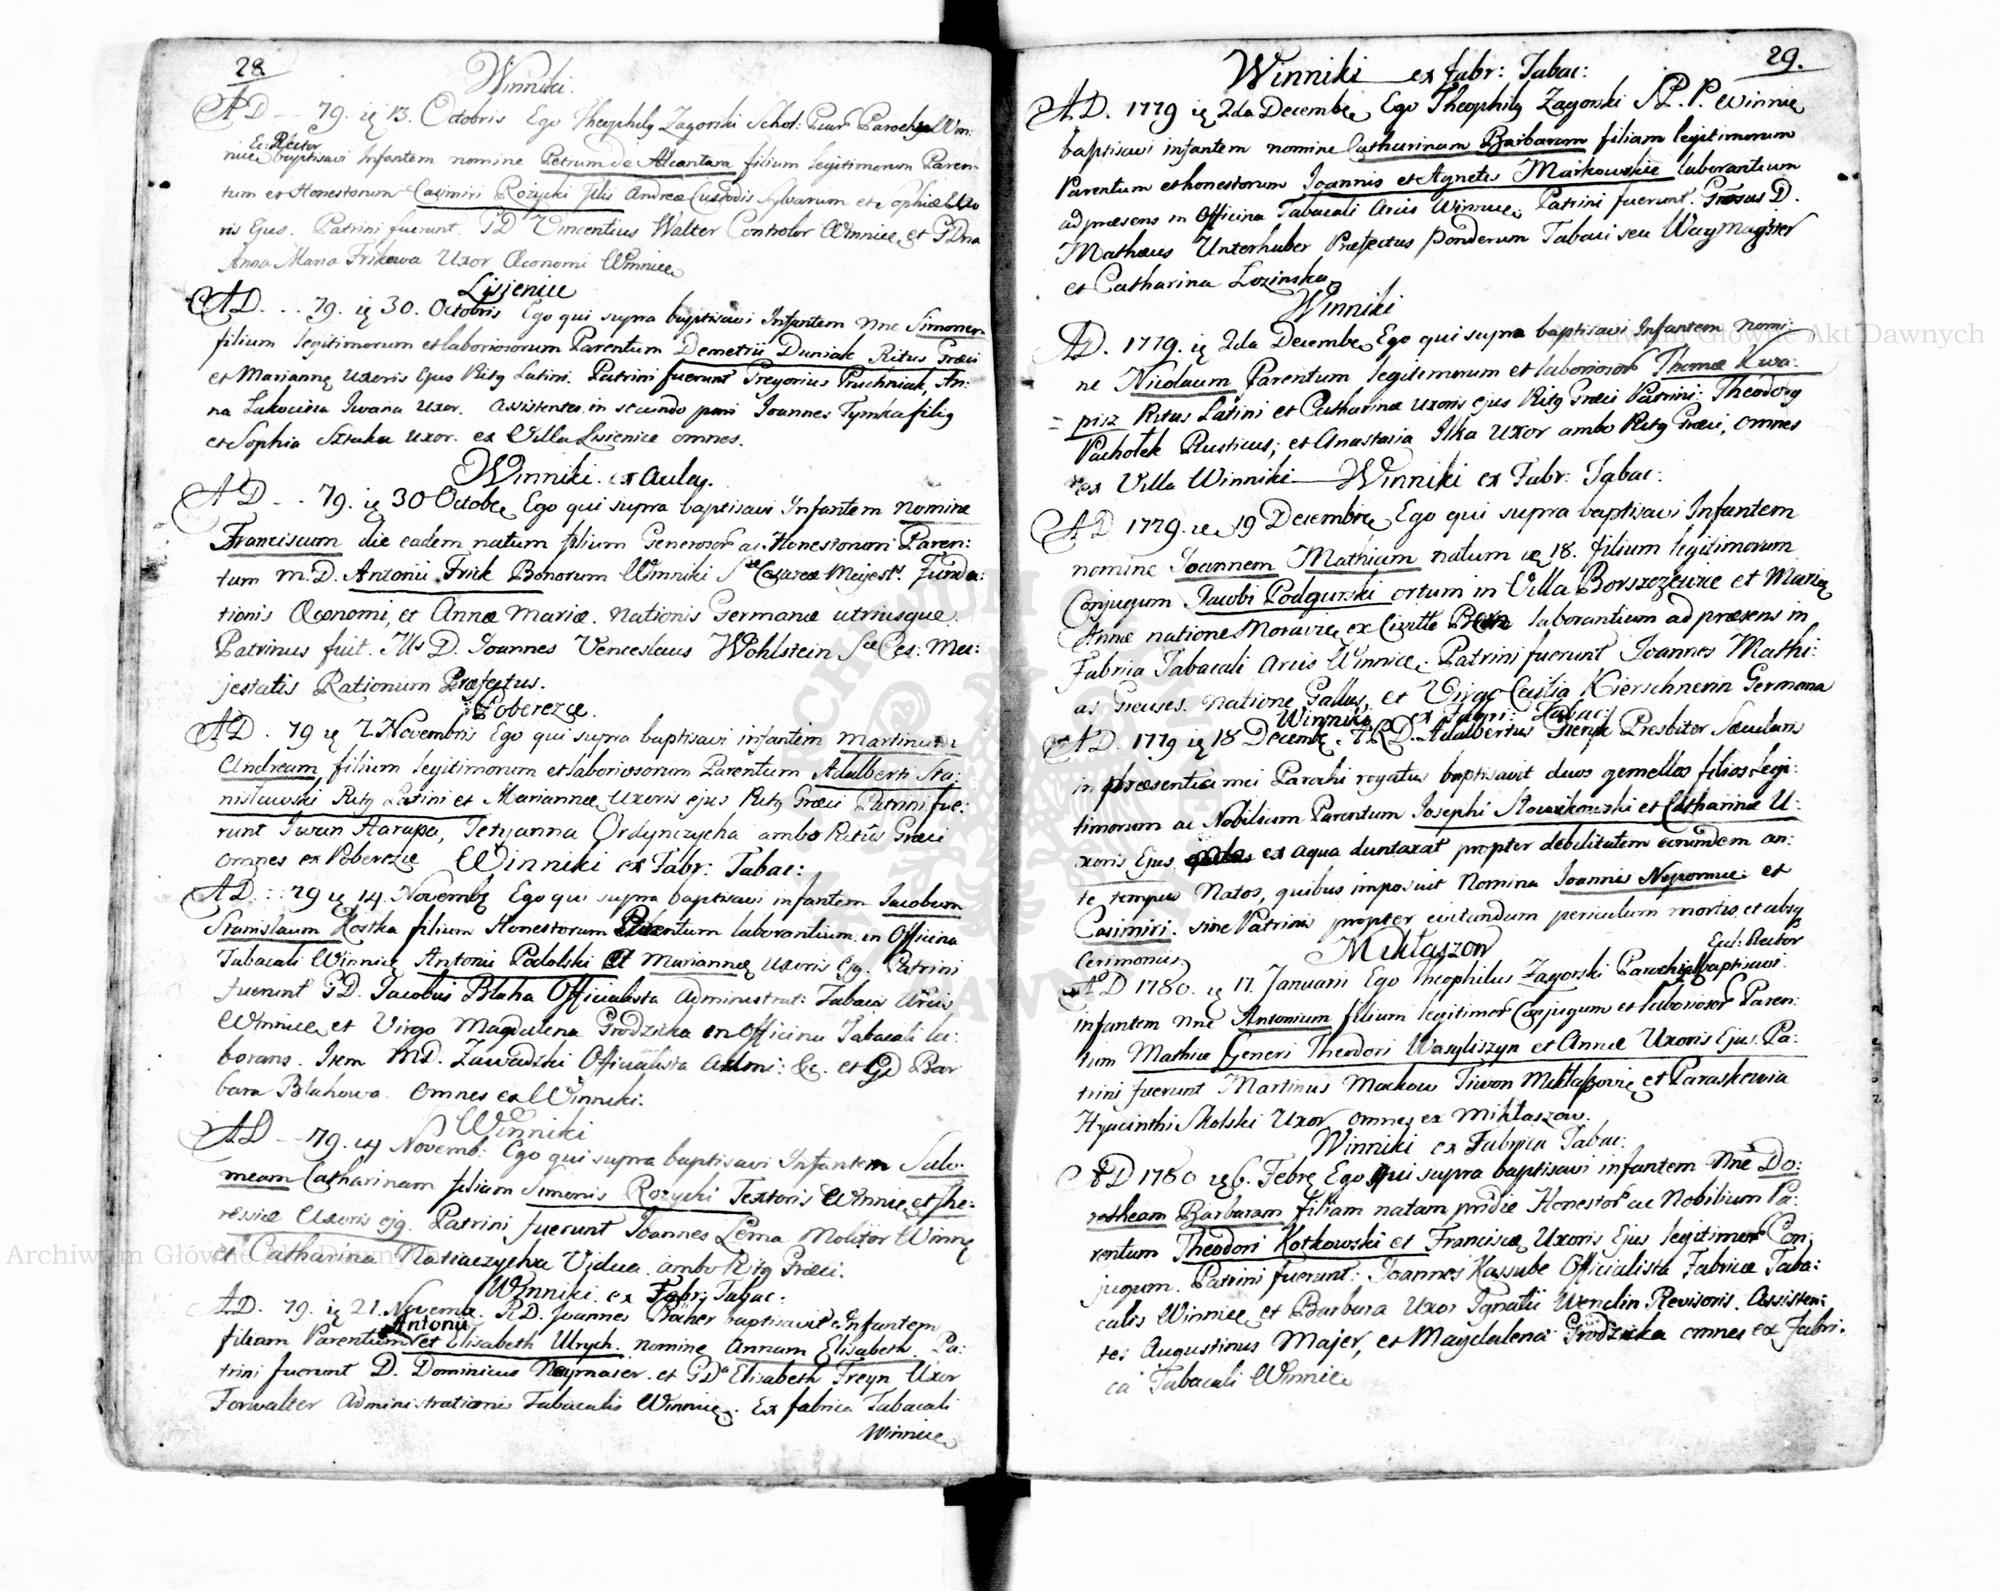 28
Winniki.
AD -- 79. ię 13. Octobris Ego Theophilg Zagorski Schol: Parochg Win:
Ec: Rector
nice baptisavi Infantem nomine Petrum de Alcantara filium legitimorum Paren
tum et Honestorum Casimiri Rożycki filii Andreæ Custodis Sylvarum et Sophiæ Uxo
ris Ejus. Patrini fuerunt. GD Vincentius Walter Controlor Winnicę et GDna
Anna Maria Frikowa Uxor Œconomi Winnicę
Lisienice
AD. .. 79. ię 30. Octobris Ego qui supra baptisavi Infantem Nne Simonem
filium legitimorum et laboriosorum Parentum Demetrii Duniak Ritus Græci
et Mariannę Uxoris Ejus Ritg Latini. Patrini fuerunt Gregorius Pruchniak, An:
na Iwana Uxor. Assistentes in secundo pari Joannes Tymka filig
et Sophia Sztuka Uxor. ex Villa Lisienice omnes.
Winniki. ex Aulag.
AD -- 79. ię 30 Octobr Ego qui supra baptisavi Infantem Nomine
Franciscum die eadem natum filium Generosor ac Honestorum Paren:
tum M.D. Antonii Frick Bonorum Winniki Sæ Cæsareæ Majest. Funda:
tionis Œconomi, et Annæ Mariæ. Nationis Germanæ utriusque.
Patrinus fuit. Ills D. Joannes Venceslaus Wohlstein Sæ Ces. Ma:
jestatis Rationum Præfectus.
Poberezce.
AD. 79 ię 7 Novembris Ego qui supra baptisavi infantem Martinum
Andream filium legitimorum et laboriosorum Parentum Adalberti Sta:
nisławski Ritg Latini et Mariannæ Uxoris ejus Ritg Græci Patrini fue:
runt Iwan Harapa, Tetyanna Ordynczycha ambo Ritûs Græci
omnes ex Poberezce Winniki ex Fabr: Tabac:
AD.:: 79 ię 14 Novembr Ego qui supra baptisavi infantem Jacobum
Stanislaum Kostka filium Honestorum Parentum laborantium in Officina
Tabacali Winnicę Antonii Podolski et Mariannę Uxoris Ejg. Patrini
fuerunt GD. Jacobus Blaha Officialista Administrat: Tabacæ Arcis
Winnicę et Virgo Magdalena Grodzicka in Officina Tabacali la:
borans. Item MD. Zawadzki Officialista Admi: &c. et GD Bar
bara Blahowa. Omnes ex Winniki.
Winniki
AD -- 79. 14 Novemb: Ego qui supra baptisavi Infantem Salo:
meam Catharinam filiam Simonis Rożycki Textoris Winnicę et The:
ressiæ Uxoris ejg. Patrini fuerunt Joannes Lema Molitor Winnę
et Catharina Vidua. ambo Ritg Græci.
Winniki. ex Fabr: Tabac:
AD. 79. ię 21. Novembr. RD. Joannes Pacher baptisavit Infantem
Antonii
filiam Parentium et Elisabeth Ulrych. nomine Annam Elisabeth. Pa:
trini fuerunt D. Dominicus Neymaser. et GDa Elisabeth Freyn Uxor
Forwalter Administrationis Tabacalis Winnicę. Ex fabrica Tabacali
Winnicę
29.
Winniki ex fabr: Tabac:
AD. 1779 ię 2da Decembr Ego Theophilg Zagorski S.P. P. Winnicę
baptisavi infantem nomine Catharinam Barbaram filiam legitimorum
Parentum et honestorum Joannis et Agnetis Markowskie laborantium
ad præsens in Officina Tabacali Arcis Winnicę. Patrini fuerunt. Grosus D.
Mathæus Unterhuber Præfectus Ponderum Tabaci seu Wagmagister
et Catharina Lozinska
Winniki
AD. 1779. ię 2da Decembr Ego qui supra baptisavi Infantem nomi:
ne Nicolaum Parentum legitimorum et laboriosor Thomæ Kwa:
pisz Ritus Latini et Catharinæ uxoris ejus Ritg Græci Patrini: Theodorg
Pachołek Rusticus; et Anastasia Ilka Uxor ambo Ritg Græci, omnes
ex Villa Winniki Winniki ex Fabr: Tabac:
AD 1779. ię 19 Decembris Ego qui supra baptisavi Infantem
nomine Joannem Mathiam natum ię 18. filium legitimorum
Conjugum Jacobi Podgurski ortum in Villa Borszczewice et Mariæ
Annæ natione Moraviæ, ex laborantium ad præsens in
Fabrica Tabacali Arcis Winnicę. Patrini fuerunt Joannes Mathi:
as Natione Gallus, et Virgo Cæcilia Kierschnerin Germana
Winniki ex Fabri: Tabac:
AD. 1779 ię 18 Decembr. A.R.D. Adalbertus Presbiter Sæcularis
in præsentia mei Parochi rogatus baptisavit duos gemellos filios Legi:
timorum ac Nobilium Parentum Josephi Nowikowski et Catharinæ U:
xoris Ejus, ex aqua duntaxat propter debilitatem eorundem an:
te tempus Natos, quibus imposuit Nomina Joannis Nepomuc: et
Casimiri. sine Patrinis propter evitandum periculum mortis, et absq
Cerimoniis Mikłaszow Ecl: Rector
AD 1780. ię 17. Januarii Ego Theophilus Zagorski Parochg baptisavi
infantem Nne Antonium filium legitimor Conjugum et laboriosor Paren:
tum Mathiæ Generi Theodori Wasyliszyn et Annæ Uxoris Ejus. Pa:
trini fuerunt Martinus Mackow Tiwon Mikłaszovię et Paraskewia
Hyacinthi Skolski Uxor omnes ex Mikłaszow.
Winniki ex Fabrica Tabac:
AD 1780 ię 6. Febr Ego qui supra baptisavi infantem Nne Do:
rotheam Barbaram filiam natam pridie Honestor ac Nobilium Pa:
rentum Theodori Kotkowski et Franciscæ Uxoris Ejus legitimor Con:
jugum. Patrini fuerunt: Joannes Kassube Officialista Fabricæ Taba:
calis Winnicę et Barbara Uxor Ignatii Wenclin Revisoris. Assisten:
tes Augustinus Majer, et Magdalena Grodzicka omnes ex Fabri:
ca Tabacali Winnicę
Archiwum Główne Akt Dawnych